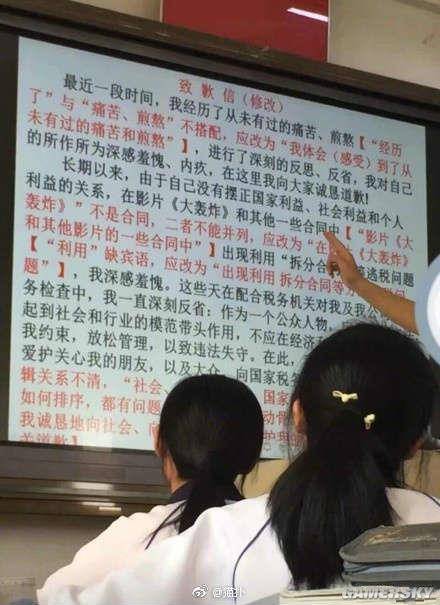 致 歉 信（修改）
最近一段时间，我经历了从未有过的痛苦、煎熬【“经历
了”与“痛苦、煎熬”不搭配，应改为“我体会（感受）到了从
未有过的痛苦和煎熬”】，进行了深刻的反思、反省，我对自己
的所作所为深感羞愧、内疚，在这里我向大家诚恳道歉！
长期以来，由于自己没有摆正国家利益、社会利益和个人
利益的关系，在影片《大轰炸》和其他一些合同中【“影片《大
轰炸》”不是合同，二者不能并列，应改为“在 《大轰炸》
和其他影片的一些合同中”】出现利用“拆分合 逃税问题
【“利用”缺宾语，应改为“出现利用 拆分合同等
题”】，我深感羞愧。这些天在配合税务机关对我及我公
务检查中，我一直深刻反省：作为一个公众人物，
起到社会和行业的模范带头作用，不应在经济
我约束，放松管理，以致违法失守。在此，
爱护关心我的朋友，以及大众 向国家税
辑关系不清，“社会、 国家
如何排序，都有问题
我诚恳地向社会、向
关道歉】
微博 @猫扑
GAMERSKY